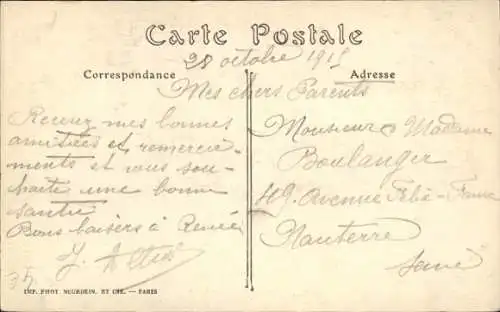 Carte Postale
28 octobre 1915
Correspondance
Adresse
Mes chers Parents
Recevez mes bonnes
amitiées et remercie-
ments et vous sou-
haite une bonne
santé
Bons baisers à Renée
Monsieur & Madame
Boulanger
49 Avenue Félix-Faure
Nanterre
Seine
35
IMP. PHOT. NEURDEIN. ET CIE. — PARIS